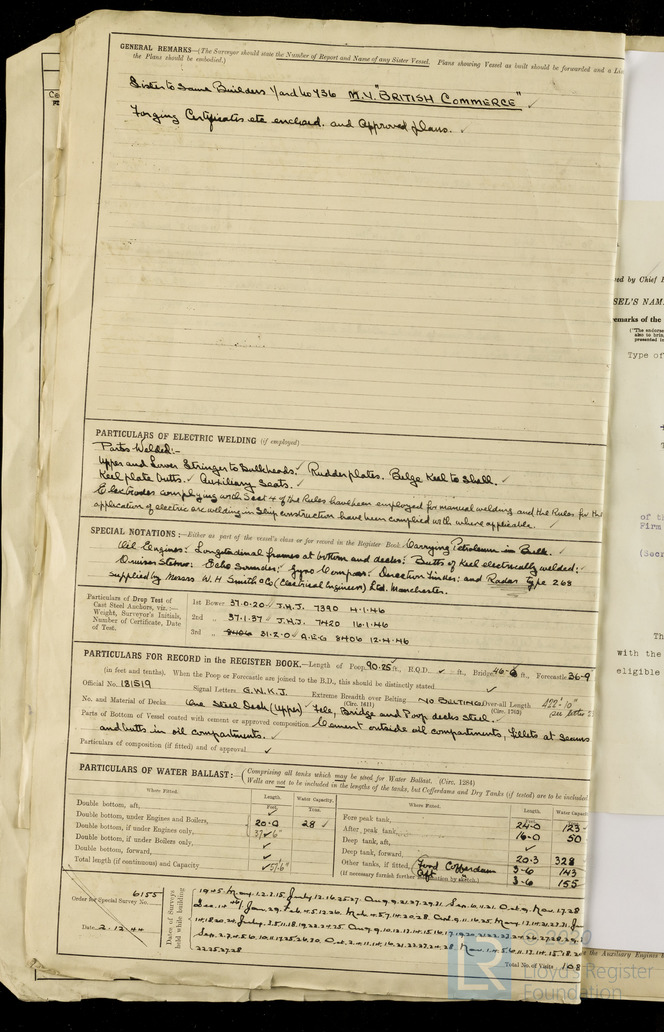 GENERAL REMARKS—(The Surveyor should state the Number of Report and Name of any Sister Vessel. Plans showing Vessel as built should be forwarded and a Lis
the Plans should be embodied.)
Sister to Same Builders Yard No 736 M.V. "BRITISH COMMERCE" ✓
Forging Certificates etc enclosed. and Approved plans. ✓
PARTICULARS OF ELECTRIC WELDING (if employed)
Parts Welded:-
Upper and Lower Stringer to Bulkheads. ✓ Rudder plates. Bilge Keel to Shell. ✓
Keel plate butts. ✓ Auxiliary Seats. ✓
Electrodes complying with Sect 4 of the Rules have been employed for manual welding and the Rules for the
application of electric arc welding in Ship construction have been complied with where applicable. ✓
SPECIAL NOTATIONS:—Either as part of the vessel's class or for record in the Register Book Carrying Petroleum in Bulk. ✓
Oil Engines: Longitudinal frames at bottom and decks: Butts of Keel electrically welded:
Cruiser Stern: Echo Sounder: Gyro Compass: Direction Finder: and Radar type 268
supplied by Messrs W. H Smith & Co (Electrical Engineers) Ltd. Manchester.
Particulars of Drop Test of
Cast Steel Anchors, viz.:—
Weight, Surveyor's Initials,
Number of Certificate, Date
of Test.
1st Bower 37.0.20 ✓ J.H.J. 7390 4.1.46
2nd „ 37.1.37 ✓ J.H.J. 7420 16.1.46
3rd „ 8406 31.2.0 ✓ A.E.G 8406 12.4.46
PARTICULARS FOR RECORD in the REGISTER BOOK.—Length of Poop 90.25 ft., R.Q.D. ✓ ft., Bridge 46-6 ft., Forecastle 36-9
(in feet and tenths). When the Poop or Forecastle are joined to the B.D., this should be distinctly stated ✓
Official No. 181519 Signal Letters G.W.K.J. Extreme Breadth over Belting NO BELTING Over-all Length 422'.10"
(Circ. 1411) (Circ. 1763) see letter
No. and Material of Decks One Steel Deck (Upper) F'cle, Bridge and Poop decks steel. ✓
Parts of Bottom of Vessel coated with cement or approved composition Cement outside oil compartments, fillets at seams
and butts in oil compartments. ✓
Particulars of composition (if fitted) and of approval ✓
PARTICULARS OF WATER BALLAST:—(Comprising all tanks which may be used for Water Ballast. (Circ. 1284)
Wells are not to be included in the lengths of the tanks, but Cofferdams and Dry Tanks (if tested) are to be included
Where Fitted. Length. Water Capacity. Where Fitted. Length. Water Capaci
Feet. Tons.
Double bottom, aft, ✓
Double bottom, under Engines and Boilers, 20-0 28 ✓
Double bottom, if under Engines only, 37'6"
Double bottom, if under Boilers only, ✓
Double bottom, forward, ✓
Total length (if continuous) and Capacity 57'.6"
Fore peak tank, 24-0 123
After peak tank, 16-0 50
Deep tank, aft, ✓
Deep tank, forward, 20.3 328
Other tanks, if fitted, Ford Cofferdam 3-6 143
(If necessary furnish further information by sketch.) Aft „ 3-6 155
Order for Special Survey No. 6155
Date 2.12.44
Dates of Surveys
held while building
Total No. of Visits 108
ed by Chief
SEL'S NAM
emarks of the
("The endorse
also to
presented
Type of
of th
Firm
(Secr
Th
with the
eligible
the Auxiliary Engines
© 2020
LR
Lloyd's Register
Foundation